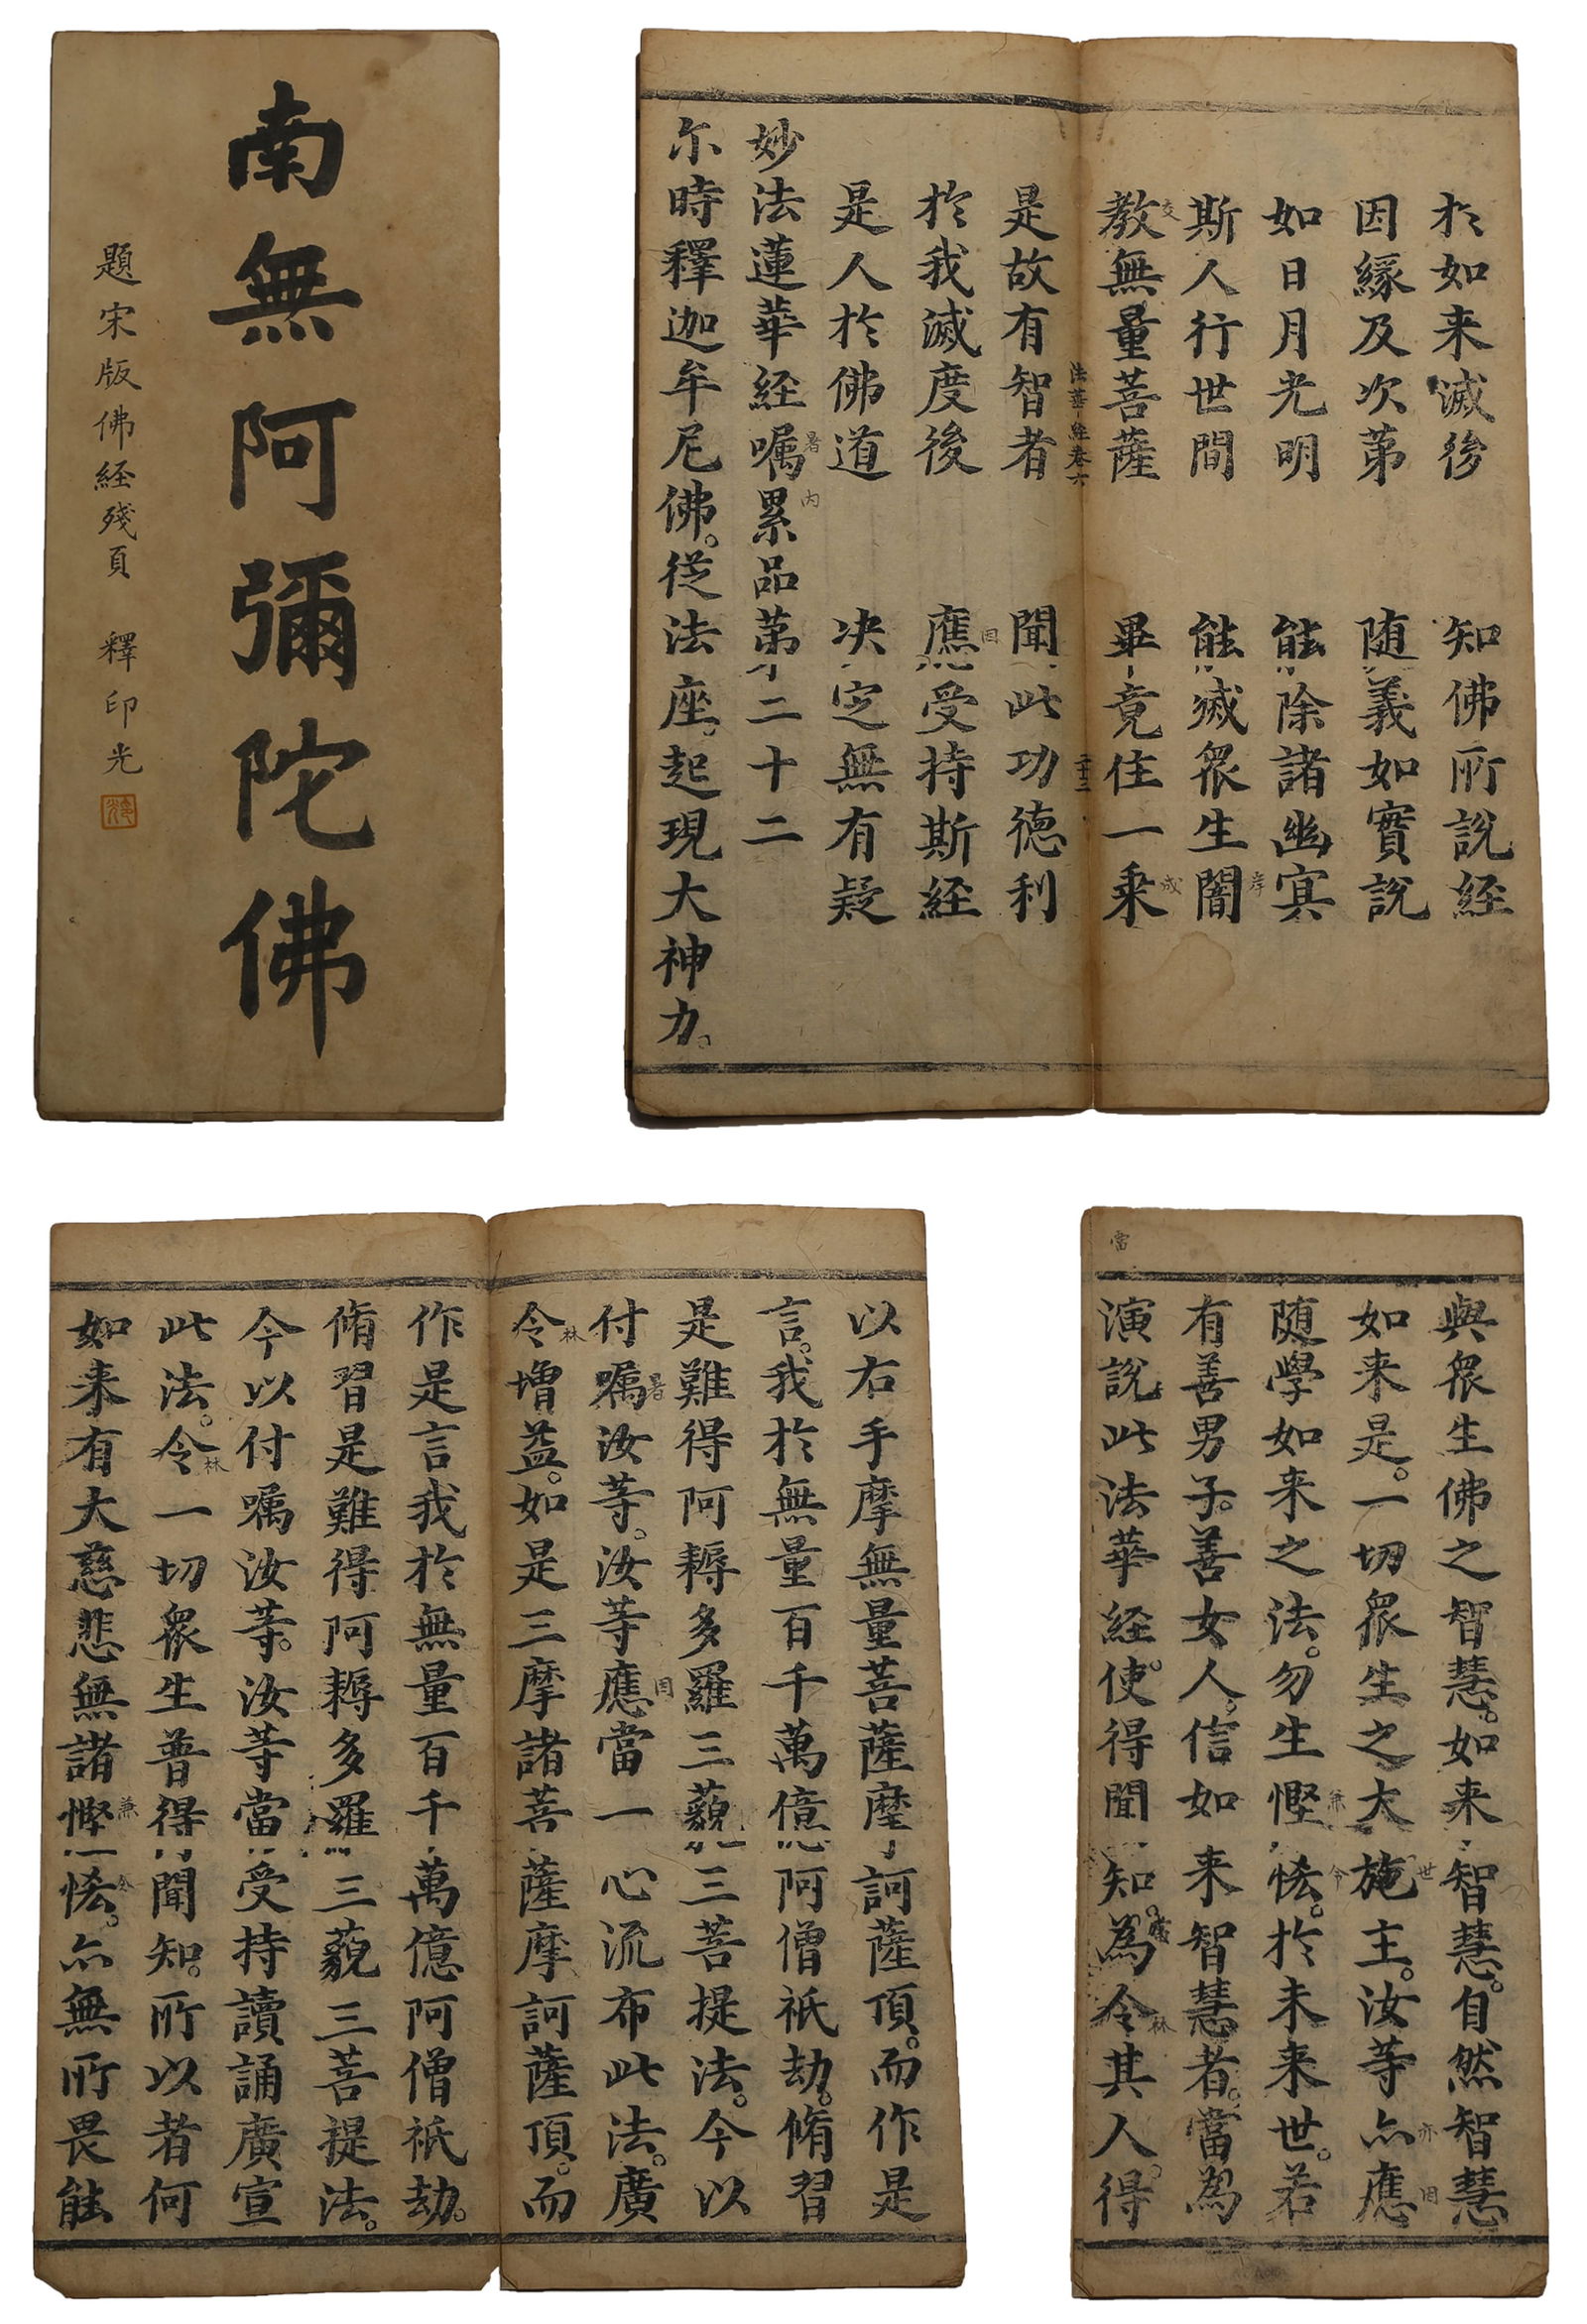 南無阿彌陀佛
題宋版佛経殘頁 釋印光
於如来滅後 知佛所說経
因緣及次第 随義如實說
如日月光明 能除諸幽㝠
斯人行世間 能滅眾生闇
教無量菩薩 畢竟住一乗
法華経卷六 二十三
是故有智者 聞此功德利
於我滅度後 應受持斯経
是人於佛道 决定無有疑
妙法蓮華経嘱累品第二十二
尓時釋迦牟尼佛。從法座。起現大神力。
以右手摩無量菩薩摩訶薩頂。而作是
言。我於無量百千萬億阿僧祇劫。脩習
是難得阿耨多羅三藐三菩提法。今以
付嘱汝等。汝等應當一心流布此法。廣
令增益。如是三摩諸菩薩摩訶薩頂。而
作是言我於無量百千萬億阿僧祇劫。
脩習是難得阿耨多羅三藐三菩提法。
今以付嘱汝等。汝等當受持讀誦廣宣
此法。令一切眾生普得聞知。所以者何
如来有大慈悲無諸慳悋。亦無所畏能
與眾生佛之智慧。如来智慧。自然智慧
如来是。一切眾生之大施主。汝等亦應
随學如来之法。勿生慳悋。於未来世。若
有善男子。善女人。信如来智慧者。當為
演說此法華経。使得聞知。為令其人得